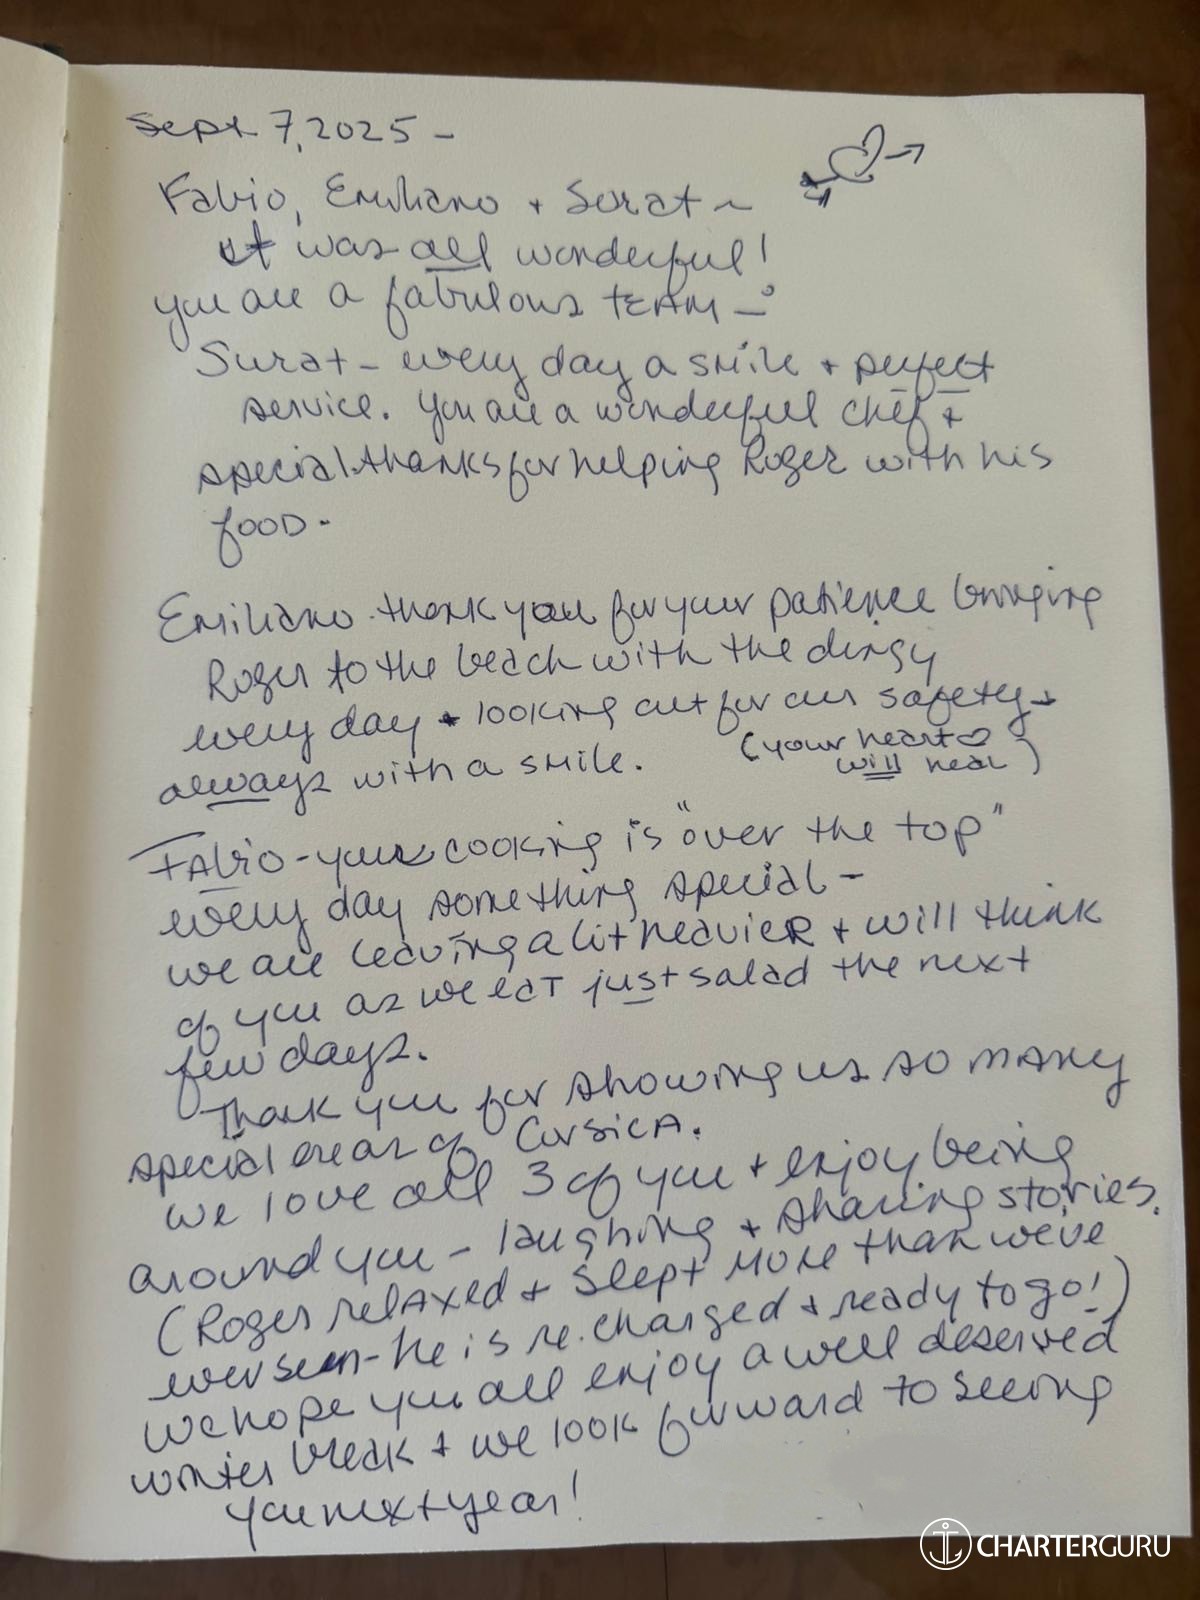 Sept 7, 2025 –
Fabio, Emiliano + Surat ~
It was all wonderful!
you are a fabulous TEAM –
Surat – every day a smile + perfect
service. You are a wonderful chef +
special thanks for helping Roger with his
food.
Emiliano. thank you for your patience bringing
Roger to the beach with the dingy
every day + looking out for our safety +
always with a smile.
(your heart ♡
will heal)
FAbio – your cooking is "over the top"
every day something special –
we are leaving a bit heavier + will think
of you as we eat just salad the next
few days.
Thank you for showing us so many
special areas of Corsica.
we love all 3 of you + enjoy being
around you – laughing + sharing stories.
(Roger relaxed + slept more than we've
ever seen – he is re.charged + ready to go!)
we hope you all enjoy a well deserved
winter break + we look forward to seeing
you next year!
CHARTERGURU